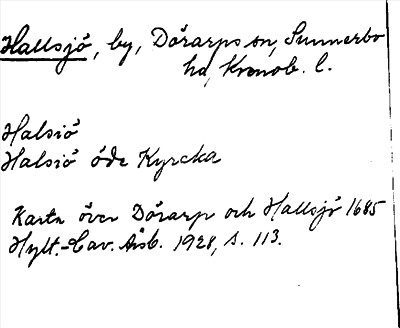 Hallsjö, by, Dörarps sn, Sunnerbo
hd, Kronob. l.
Halsiö
Halsiö öde Kyrcka
Karta över Dörarp och Hallsjö 1685
Hylt.-Cav. Årsb. 1928, s. 113.